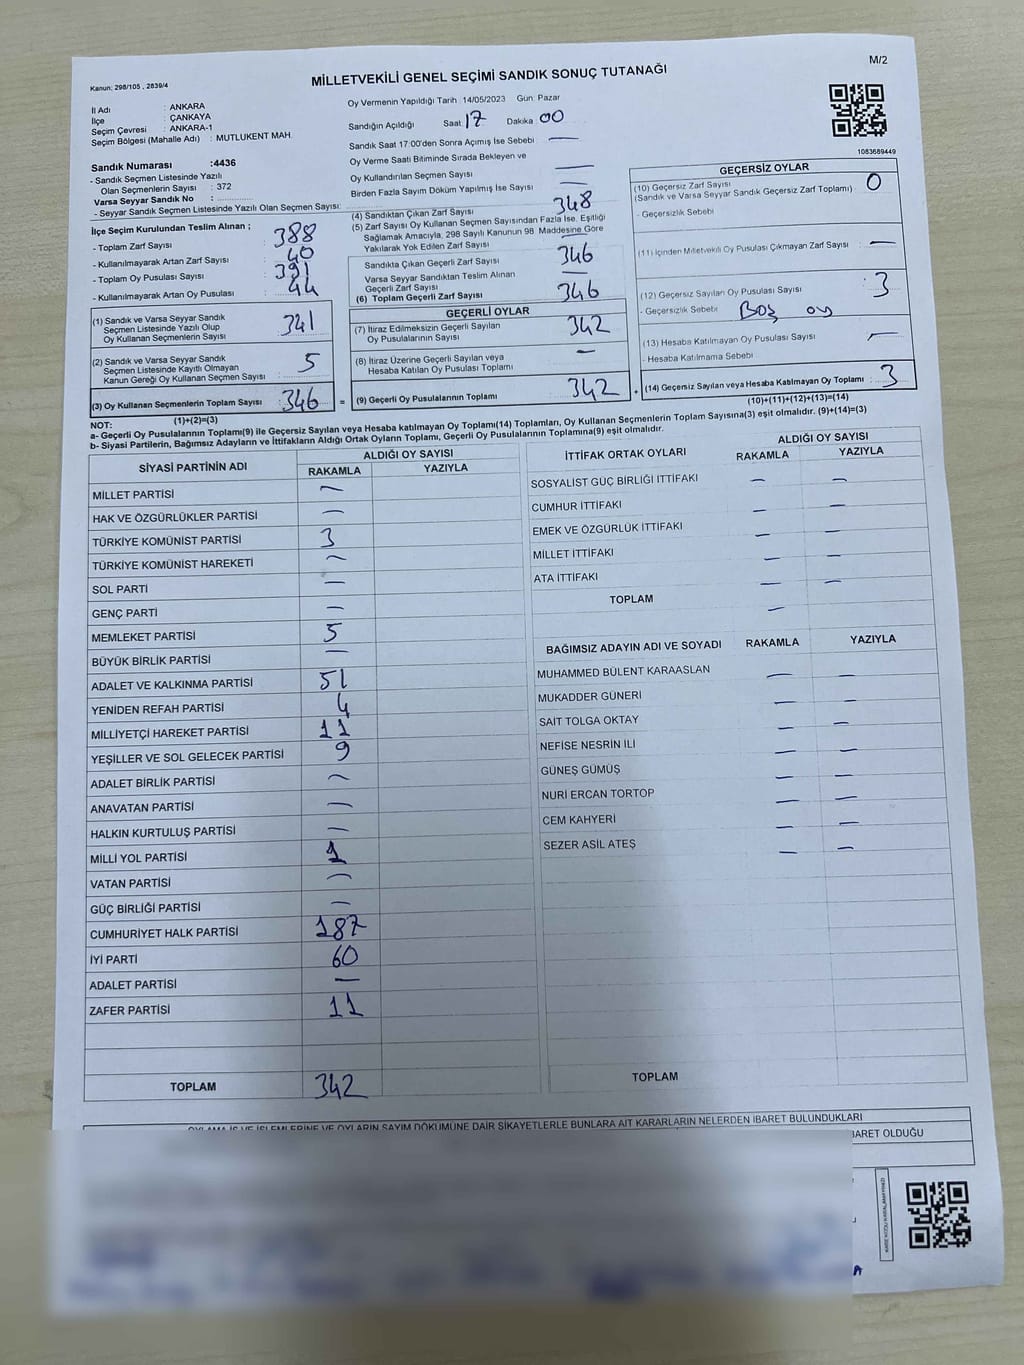 M/2
Kanun: 298/105 , 2839/4
MİLLETVEKİLİ GENEL SEÇİMİ SANDIK SONUÇ TUTANAĞI
İl Adı : ANKARA
İlçe : ÇANKAYA
Seçim Çevresi : ANKARA-1
Seçim Bölgesi (Mahalle Adı) : MUTLUKENT MAH.
Sandık Numarası :4436
- Sandık Seçmen Listesinde Yazılı
Olan Seçmenlerin Sayısı : 372
Varsa Seyyar Sandık No :
- Seyyar Sandık Seçmen Listesinde Yazılı Olan Seçmen Sayısı:
İlçe Seçim Kurulundan Teslim Alınan ;
- Toplam Zarf Sayısı : 388
- Kullanılmayarak Artan Zarf Sayısı : 40
- Toplam Oy Pusulası Sayısı : 391
- Kullanılmayarak Artan Oy Pusulası : 44
(1) Sandık ve Varsa Seyyar Sandık
Seçmen Listesinde Yazılı Olup
Oy Kullanan Seçmenlerin Sayısı : 341
(2) Sandık ve Varsa Seyyar Sandık
Seçmen Listesinde Kayıtlı Olmayan
Kanun Gereği Oy Kullanan Seçmen Sayısı : 5
(3) Oy Kullanan Seçmenlerin Toplam Sayısı : 346 =
(1)+(2)=(3)
Oy Vermenin Yapıldığı Tarih : 14/05/2023 Gün: Pazar
Sandığın Açıldığı Saat: 17 Dakika: 00
Sandık Saat 17:00'den Sonra Açımış İse Sebebi —
Oy Verme Saati Bitiminde Sırada Bekleyen ve
Oy Kullandırılan Seçmen Sayısı —
Birden Fazla Sayım Döküm Yapılmış İse Sayısı —
(4) Sandıktan Çıkan Zarf Sayısı : 348
(5) Zarf Sayısı Oy Kullanan Seçmen Sayısından Fazla İse, Eşitliği
Sağlamak Amacıyla, 298 Sayılı Kanunun 98. Maddesine Göre
Yakılarak Yok Edilen Zarf Sayısı : —
Sandıkta Çıkan Geçerli Zarf Sayısı : 346
Varsa Seyyar Sandıktan Teslim Alınan
Geçerli Zarf Sayısı : —
(6) Toplam Geçerli Zarf Sayısı : 346
GEÇERLİ OYLAR
(7) İtiraz Edilmeksizin Geçerli Sayılan
Oy Pusulalarının Sayısı : 342
(8) İtiraz Üzerine Geçerli Sayılan veya
Hesaba Katılan Oy Pusulası Toplamı : —
(9) Geçerli Oy Pusulalarının Toplamı : 342 +
1083689449
GEÇERSİZ OYLAR
(10) Geçersiz Zarf Sayısı : 0
(Sandık ve Varsa Seyyar Sandık Geçersiz Zarf Toplamı)
- Geçersizlik Sebebi
(11) İçinden Milletvekili Oy Pusulası Çıkmayan Zarf Sayısı : —
(12) Geçersiz Sayılan Oy Pusulası Sayısı : 3
- Geçersizlik Sebebi Boş oy
(13) Hesaba Katılmayan Oy Pusulası Sayısı : —
- Hesaba Katılmama Sebebi
(14) Geçersiz Sayılan veya Hesaba Katılmayan Oy Toplamı : 3
(10)+(11)+(12)+(13)=(14)
NOT:
a- Geçerli Oy Pusulalarının Toplamı(9) ile Geçersiz Sayılan veya Hesaba katılmayan Oy Toplamı(14) Toplamları, Oy Kullanan Seçmenlerin Toplam Sayısına(3) eşit olmalıdır. (9)+(14)=(3)
b- Siyasi Partilerin, Bağımsız Adayların ve İttifakların Aldığı Ortak Oyların Toplamı, Geçerli Oy Pusulalarının Toplamına(9) eşit olmalıdır.
SİYASİ PARTİNİN ADI ALDIĞI OY SAYISI
RAKAMLA YAZIYLA
MİLLET PARTİSİ —
HAK VE ÖZGÜRLÜKLER PARTİSİ —
TÜRKİYE KOMÜNİST PARTİSİ 3
TÜRKİYE KOMÜNİST HAREKETİ —
SOL PARTİ —
GENÇ PARTİ —
MEMLEKET PARTİSİ 5
BÜYÜK BİRLİK PARTİSİ —
ADALET VE KALKINMA PARTİSİ 51
YENİDEN REFAH PARTİSİ 4
MİLLİYETÇİ HAREKET PARTİSİ 11
YEŞİLLER VE SOL GELECEK PARTİSİ 9
ADALET BİRLİK PARTİSİ —
ANAVATAN PARTİSİ —
HALKIN KURTULUŞ PARTİSİ —
MİLLİ YOL PARTİSİ 1
VATAN PARTİSİ —
GÜÇ BİRLİĞİ PARTİSİ —
CUMHURİYET HALK PARTİSİ 187
İYİ PARTİ 60
ADALET PARTİSİ —
ZAFER PARTİSİ 11
TOPLAM 342
İTTİFAK ORTAK OYLARI ALDIĞI OY SAYISI
RAKAMLA YAZIYLA
SOSYALİST GÜÇ BİRLİĞİ İTTİFAKI — —
CUMHUR İTTİFAKI — —
EMEK VE ÖZGÜRLÜK İTTİFAKI — —
MİLLET İTTİFAKI — —
ATA İTTİFAKI — —
TOPLAM —
BAĞIMSIZ ADAYIN ADI VE SOYADI RAKAMLA YAZIYLA
MUHAMMED BÜLENT KARAASLAN — —
MUKADDER GÜNERİ — —
SAİT TOLGA OKTAY — —
NEFİSE NESRİN İLİ — —
GÜNEŞ GÜMÜŞ — —
NURİ ERCAN TORTOP — —
CEM KAHYERİ — —
SEZER ASİL ATEŞ — —
TOPLAM
OYLAMA İŞ VE İŞLEMLERİNE VE OYLARIN SAYIM DÖKÜMÜNE DAİR ŞİKAYETLERLE BUNLARA AİT KARARLARIN NELERDEN İBARET BULUNDUKLARI
İBARET OLDUĞU